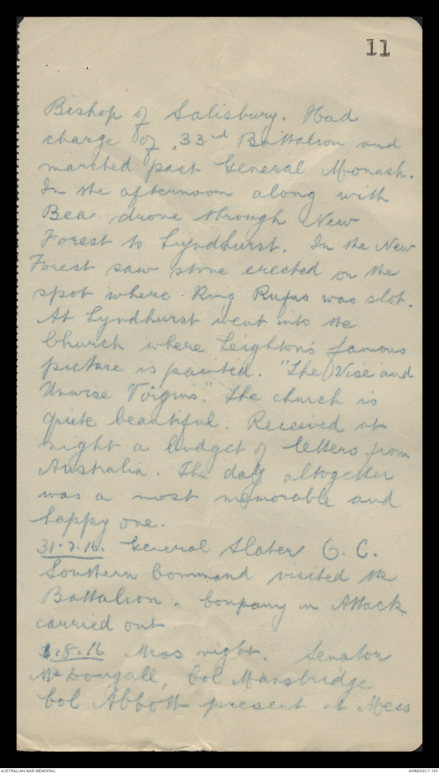 11
Bishop of Salisbury. Had
charge of 33rd Battalion and
marched past General Monash.
In the afternoon along with
Bea drove through New
Forest to Lyndhurst. In the New
Forest saw stone erected on the
spot where King Rufus was shot.
At Lyndhurst went into the
Church where Leighton's famous
picture is painted. "The Wise and
Unwise Virgins." The church is
quite beautiful. Received at
night a budget of letters from
Australia. The day altogether
was a most memorable and
happy one.
31.7.16. General Slater G.C.
Southern Command visited the
Battalion. Company in Attack
carried out.
1.8.16 Mess night. Senator
McDougall, Col Mansbridge
Col Abbott present at Mess
AUSTRALIAN WAR MEMORIAL